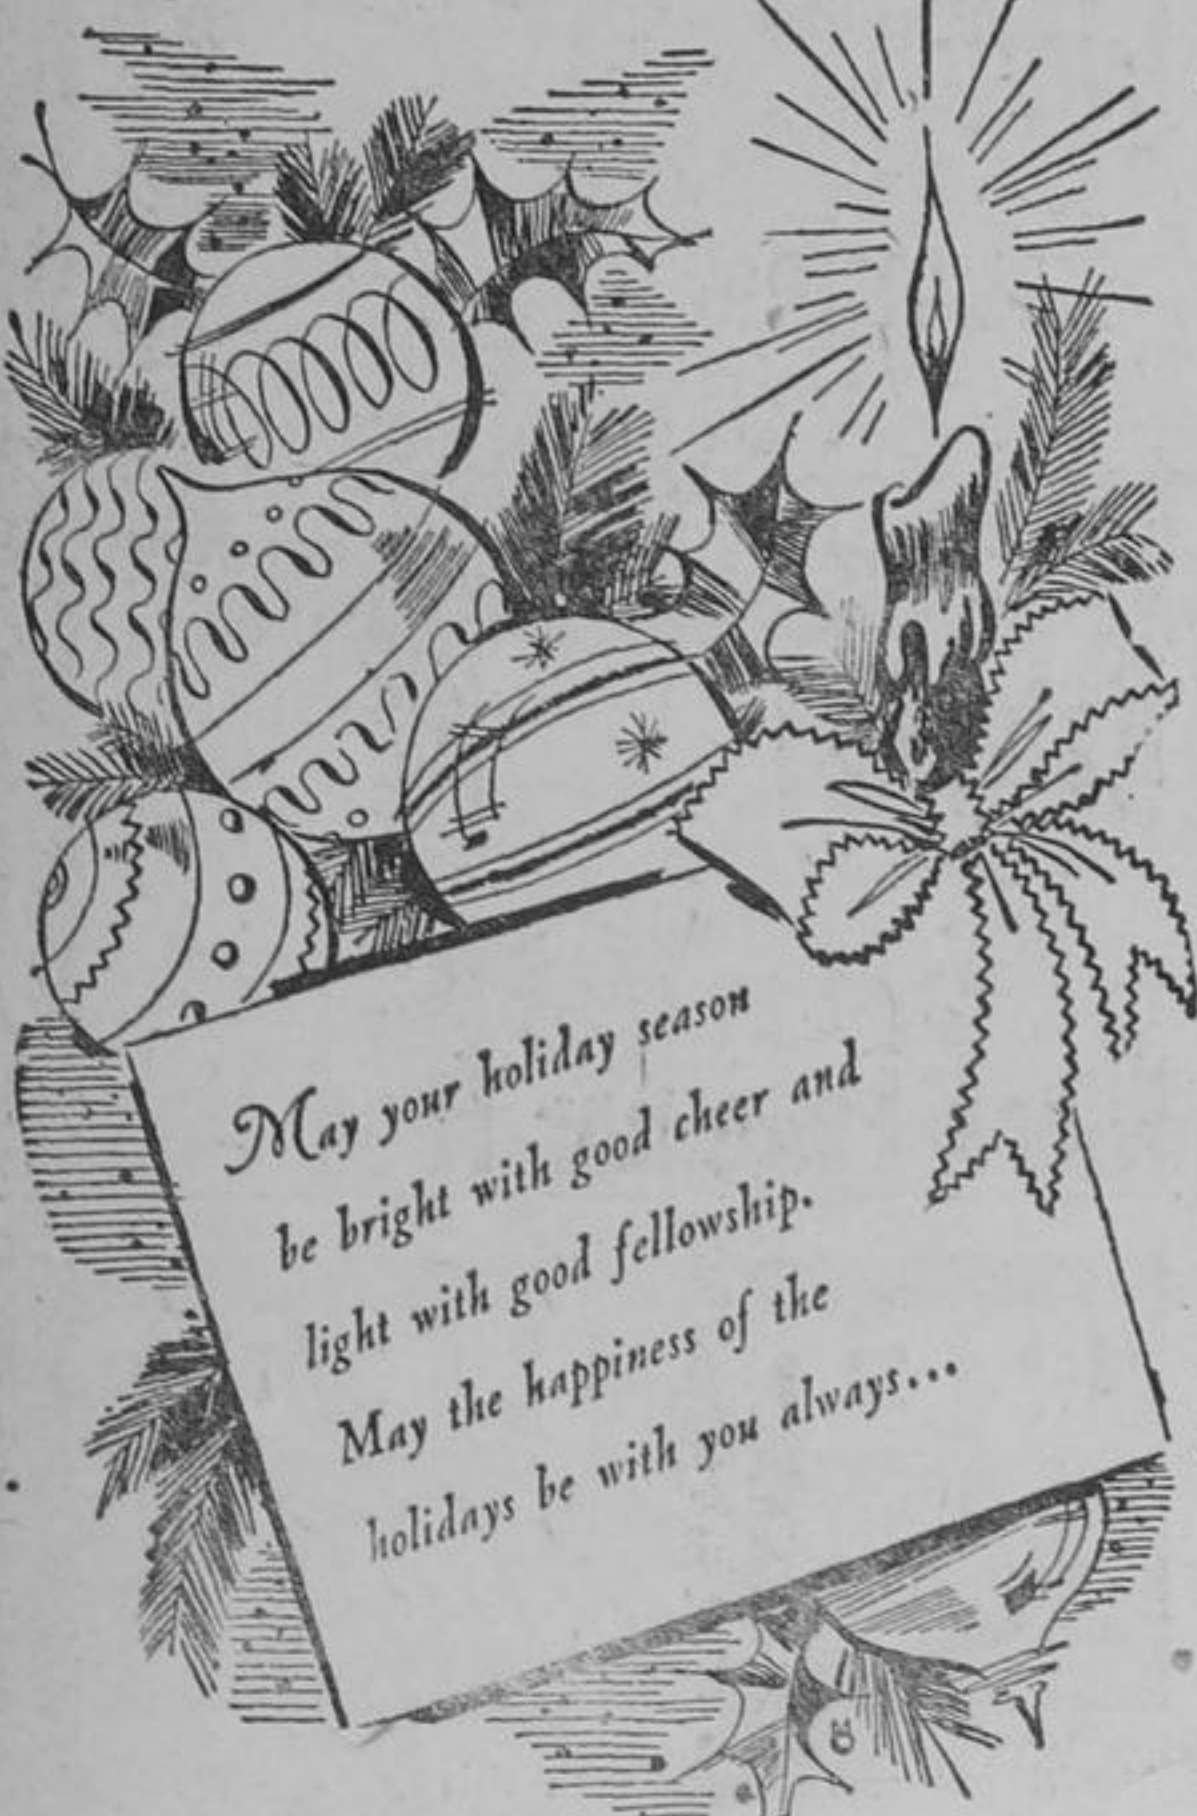 May your holiday season
be bright with good cheer and
light with good fellowship.
May the happiness of the
holidays be with you always...